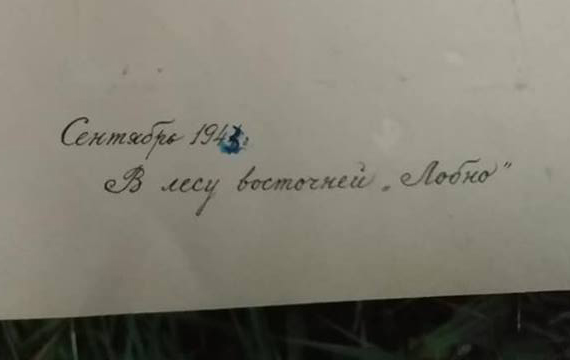 Сентябрь 1943.
В лесу восточней „Лобно"